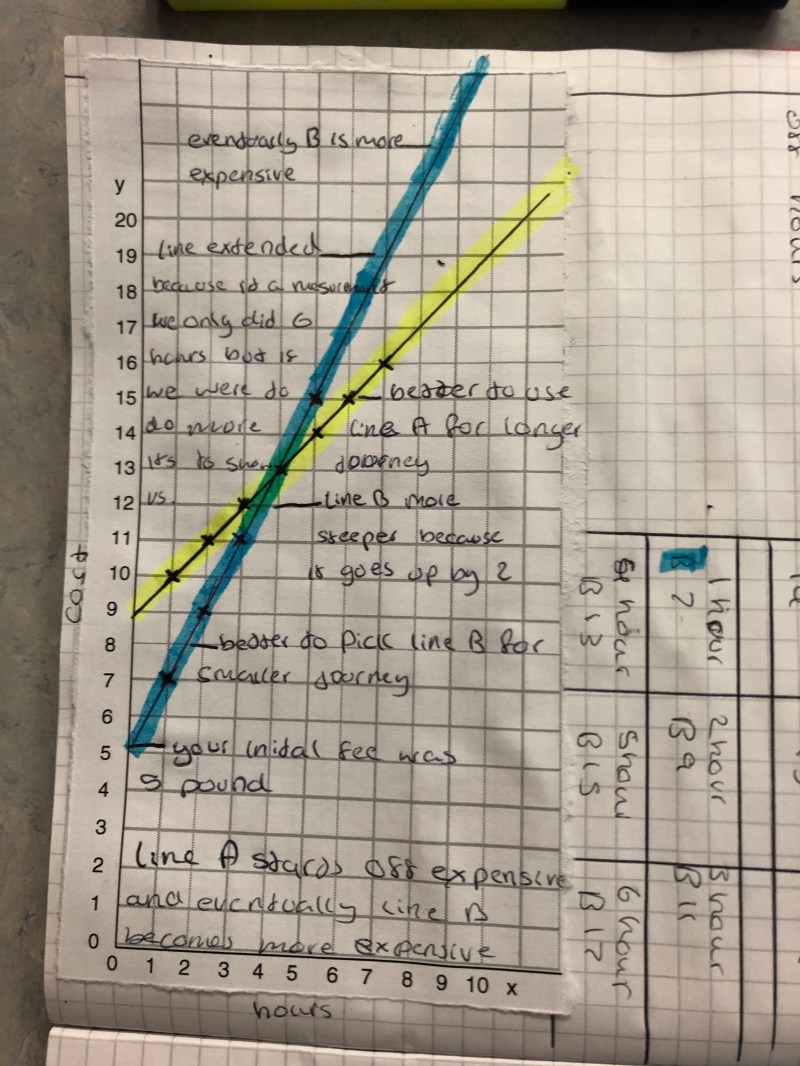 eventually B is more
expensive
y
20
19
18
17
16
15
14
13
12
11
10
9
8
7
6
5
4
3
2
1
0
line extended
because
we only did 6
hours but if
we were do
do more
its to show
us
better to use
line A for longer
line B more
steeper because
it goes up by 2
better to pick line B for
smaller journey
your inital fee was
5 pound
line A starts off expensive
and eventually line B
becomes more expensive
0 1 2 3 4 5 6 7 8 9 10 x
hours
cost
1 hour
B 7
2 hour
B 9
3 hour
B 11
4 hour
B 13
5 hour
B 15
6 hour
B 17